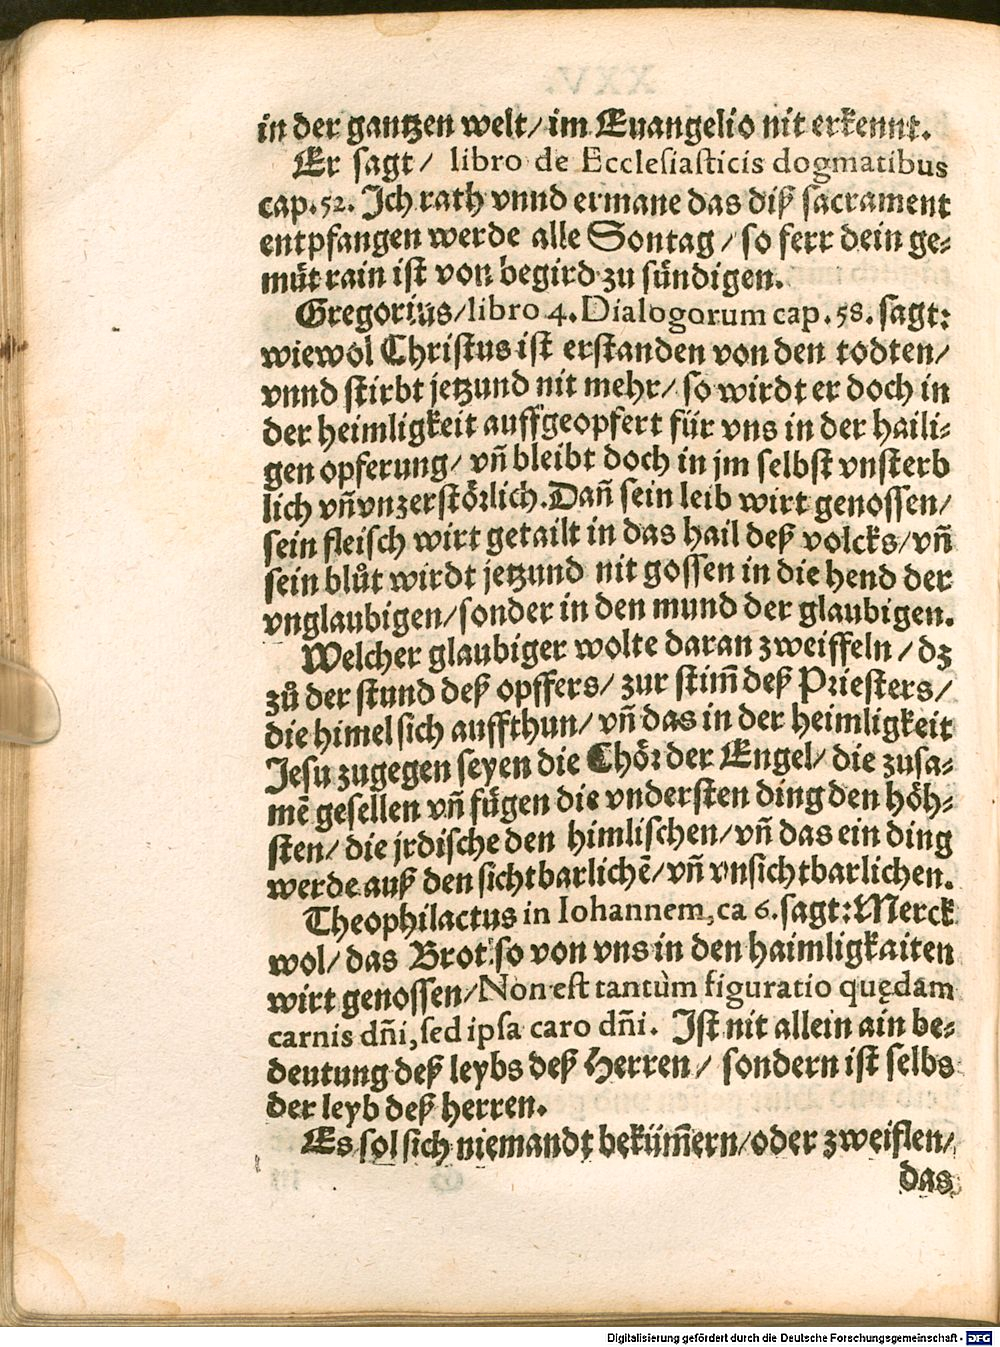 in der gantzen welt/ im Euangelio nit erkennt.
Er sagt/ libro de Ecclesiasticis dogmatibus
cap.52. Jch rath vnnd ermane das diß sacrament
entpfangen werde alle Sontag/ so ferr dein ge⸗
muͤt rain ist von begird zu sündigen.
Gregorius/ libro 4. Dialogorum cap.58. sagt:
wiewol Christus ist erstanden von den todten/
vnnd stirbt jetzund nit mehr/ so wirdt er doch in
der heimligkeit auffgeopfert für vns in der haili⸗
gen opferung/ vñ bleibt doch in jm selbst vnsterb
lich vñ vnzerstoͤrlich. Dañ sein leib wirt genossen/
sein fleisch wirt getailt in das hail deß volcks/ vñ
sein bluͦt wirdt jetzund nit gossen in die hend der
vnglaubigen/ sonder in den mund der glaubigen.
Welcher glaubiger wolte daran zweiffeln/ dz
zuͦ der stund deß opffers/ zur stim̃ deß Priesters/
die himel sich auffthun/ vñ das in der heimligkeit
Jesu zugegen seyen die Choͤr der Engel/ die zusa⸗
mē gesellen vñ fuͤgen die vndersten ding den hoͤh⸗
sten/ die jrdische den himlischen/ vñ das ein ding
werde auß den sichtbarlichē/ vñ vnsichtbarlichen.
Theophilactus in Iohannem, ca 6. sagt: Merck
wol/ das Brot so von vns in den haimligkaiten
wirt genossen/ Non est tantùm figuratio quędam
carnis dñi, sed ipsa caro dñi. Jst nit allein ain be⸗
deutung deß leybs deß Herren/ sondern ist selbs
der leyb deß herren.
Es sol sich niemandt bekum̃ern/ oder zweiflen/
das
Digitalisierung gefördert durch die Deutsche Forschungsgemeinschaft - DFG